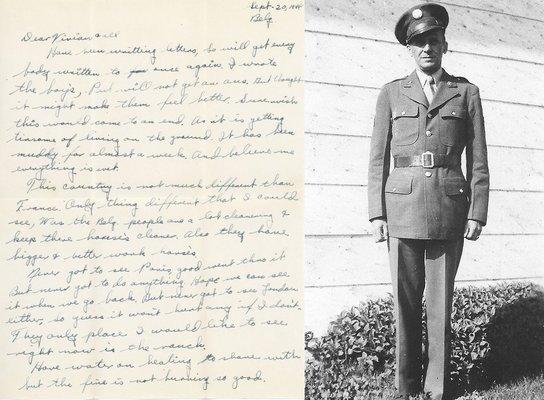 Sept. 20, 1944
Belg.
Dear Vivian & all
Have been writting letters, So will get every
body written to for once again. I wrote
the boy's, But will not get an ans. But thought
it might make them feel better. Sure wish
this would come to an end. As it is getting
tiresome of living on the ground. It has been
muddy for almost a week. And believe me
everything is wet.
This country is not much different than
France. Only thing different that I could
see, Was the Belg. people are a lot cleaning &
keep there houses cleaner. Also they have
bigger & better work horses.
Never got to see Paris, good went thru it
But never got to do anything. Hope we can see
it when we go back. But never got to see London
either, so guess it won't hurt any if I don't.
They only place I would like to see
right now is the ranch.
Have water on heating to shave with
but the fire is not burning so good.